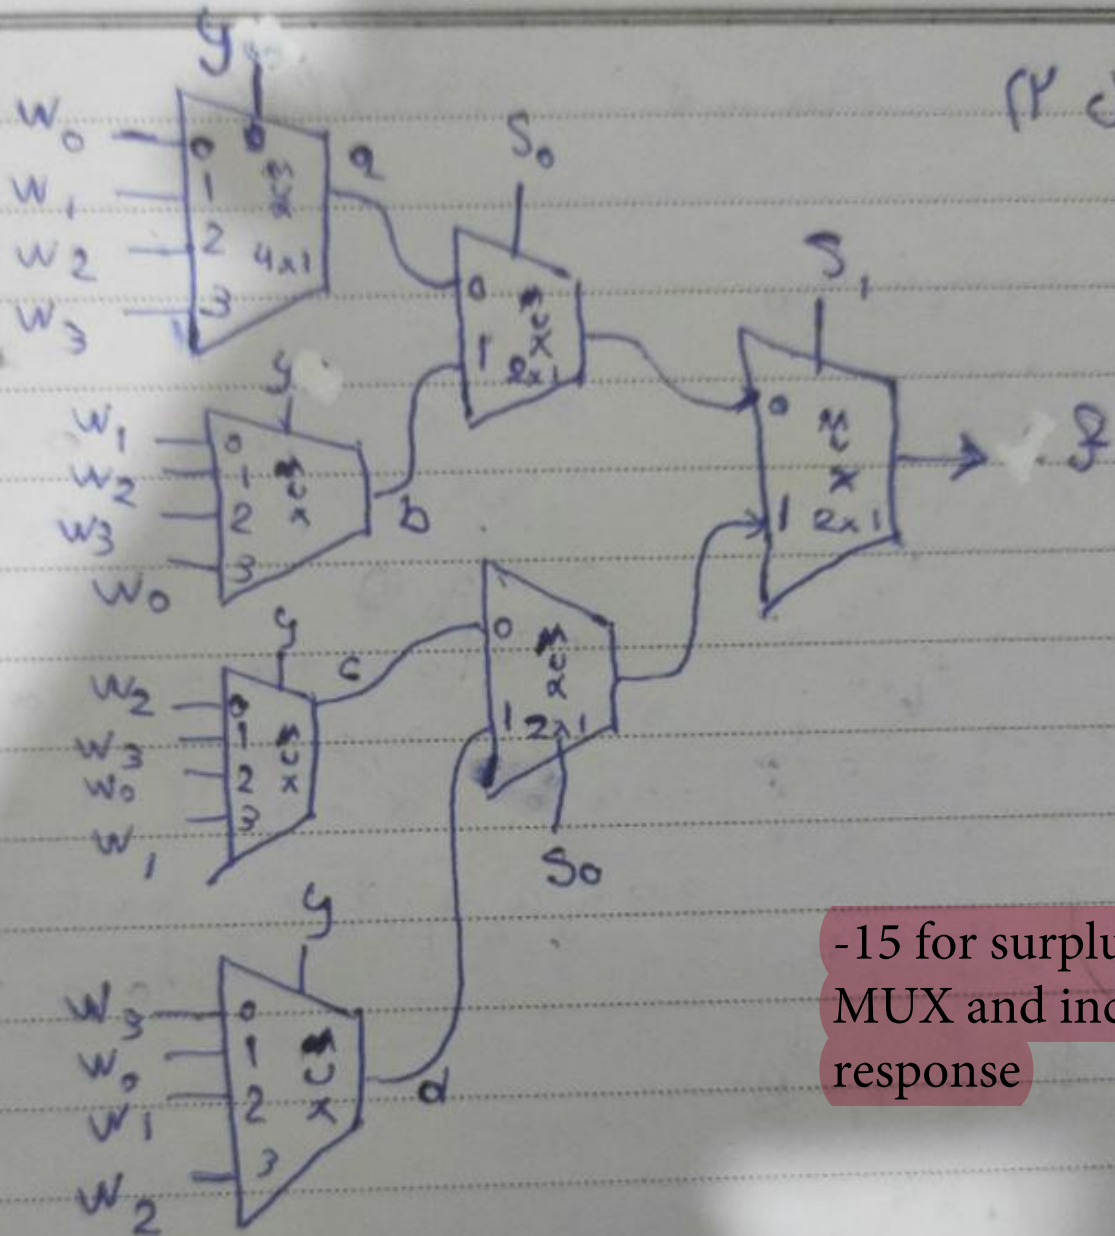 y
W0
W1
W2
W3
0
1
2
3
MUX
4x1
a
S0
0
1
MUX
2x1
S1
0
1
MUX
2x1
f
y
W1
W2
W3
W0
0
1
2
3
MUX
b
y
W2
W3
W0
W1
0
1
2
3
MUX
c
0
1
MUX
2x1
S0
y
W3
W0
W1
W2
0
1
2
3
MUX
d
-15 for surplu
MUX and inc
response